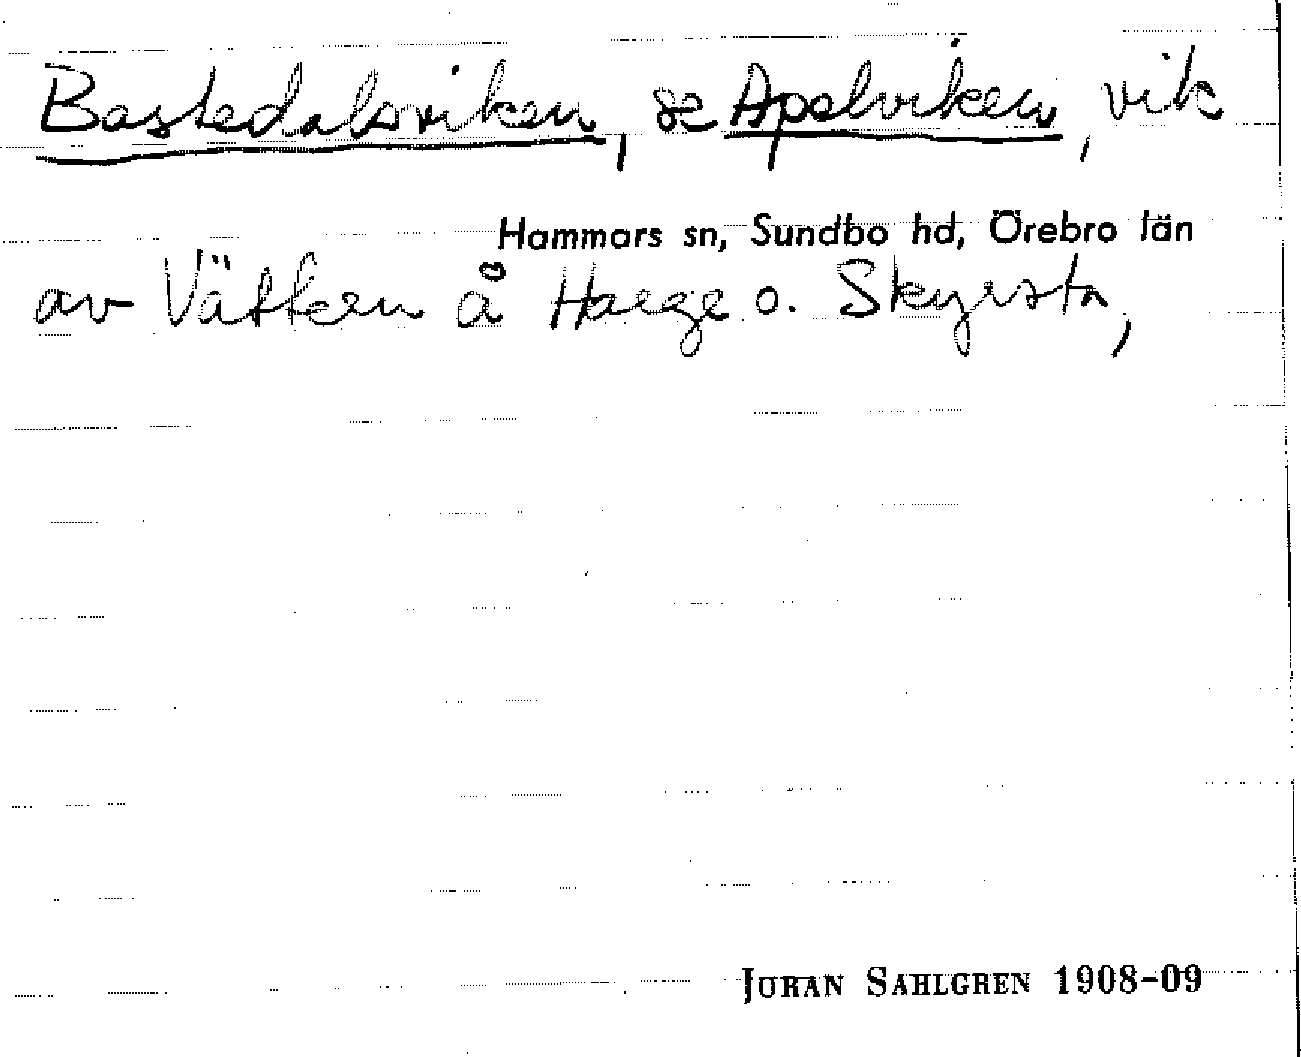 Bastedalsviken, se Apelviken, vik
Hammars sn, Sundbo hd, Örebro län
av Vättern å Harge o. Skyrsta,
JÖRAN SAHLGREN 1908-09